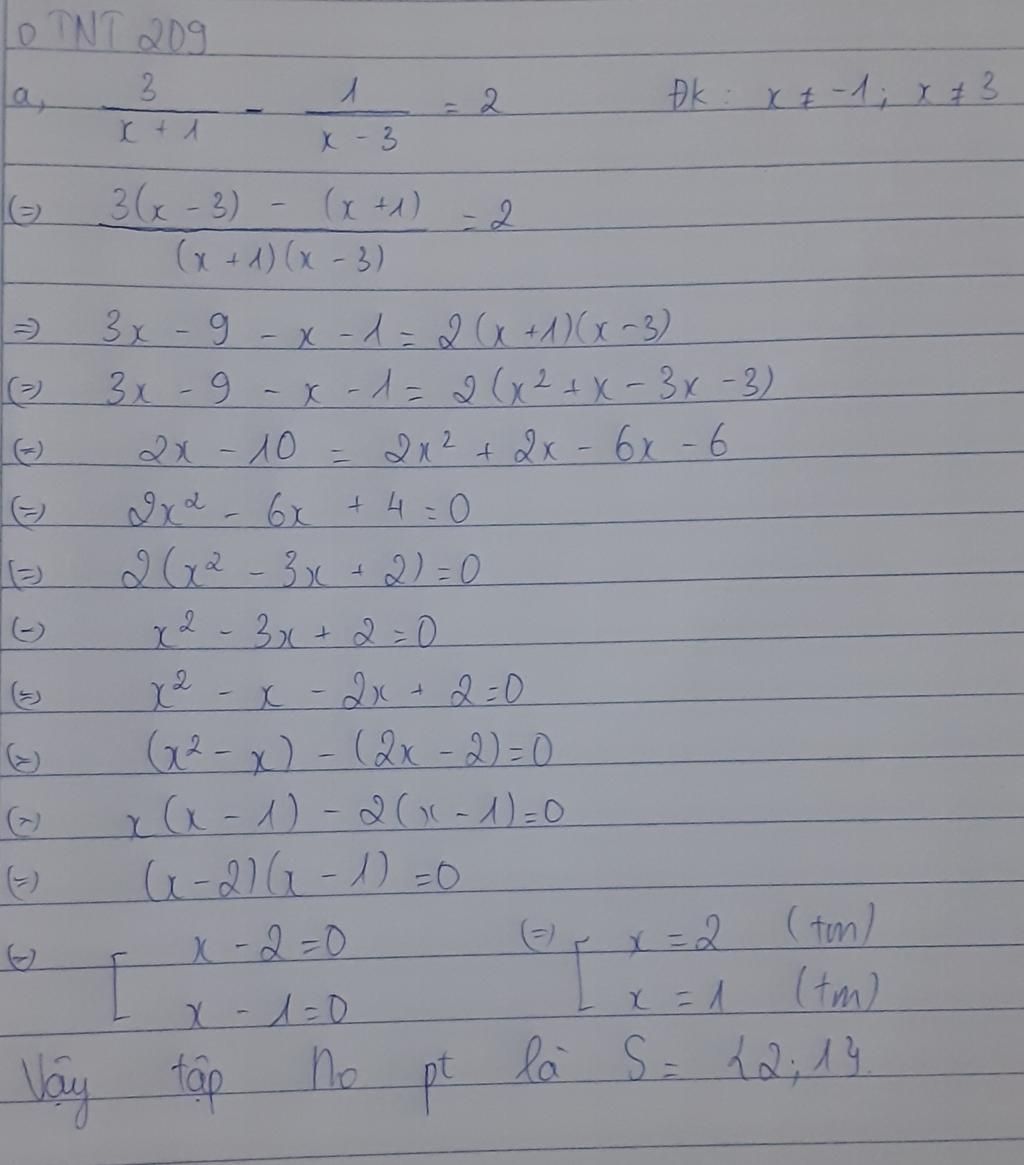 o TNT 209
a, 3/(x + 1) - 1/(x - 3) = 2 ĐK: x ≠ -1; x ≠ 3
(=) (3(x - 3) - (x + 1))/((x + 1)(x - 3)) = 2
=) 3x - 9 - x - 1 = 2(x + 1)(x - 3)
(=) 3x - 9 - x - 1 = 2(x² + x - 3x - 3)
(=) 2x - 10 = 2x² + 2x - 6x - 6
(=) 2x² - 6x + 4 = 0
(=) 2(x² - 3x + 2) = 0
(-) x² - 3x + 2 = 0
(=) x² - x - 2x + 2 = 0
(=) (x² - x) - (2x - 2) = 0
(=) x(x - 1) - 2(x - 1) = 0
(=) (x - 2)(x - 1) = 0
(=) [ x - 2 = 0 (=) [ x = 2 (tm)
x - 1 = 0 x = 1 (tm)
Vậy tập No pt là S = {2; 1}.